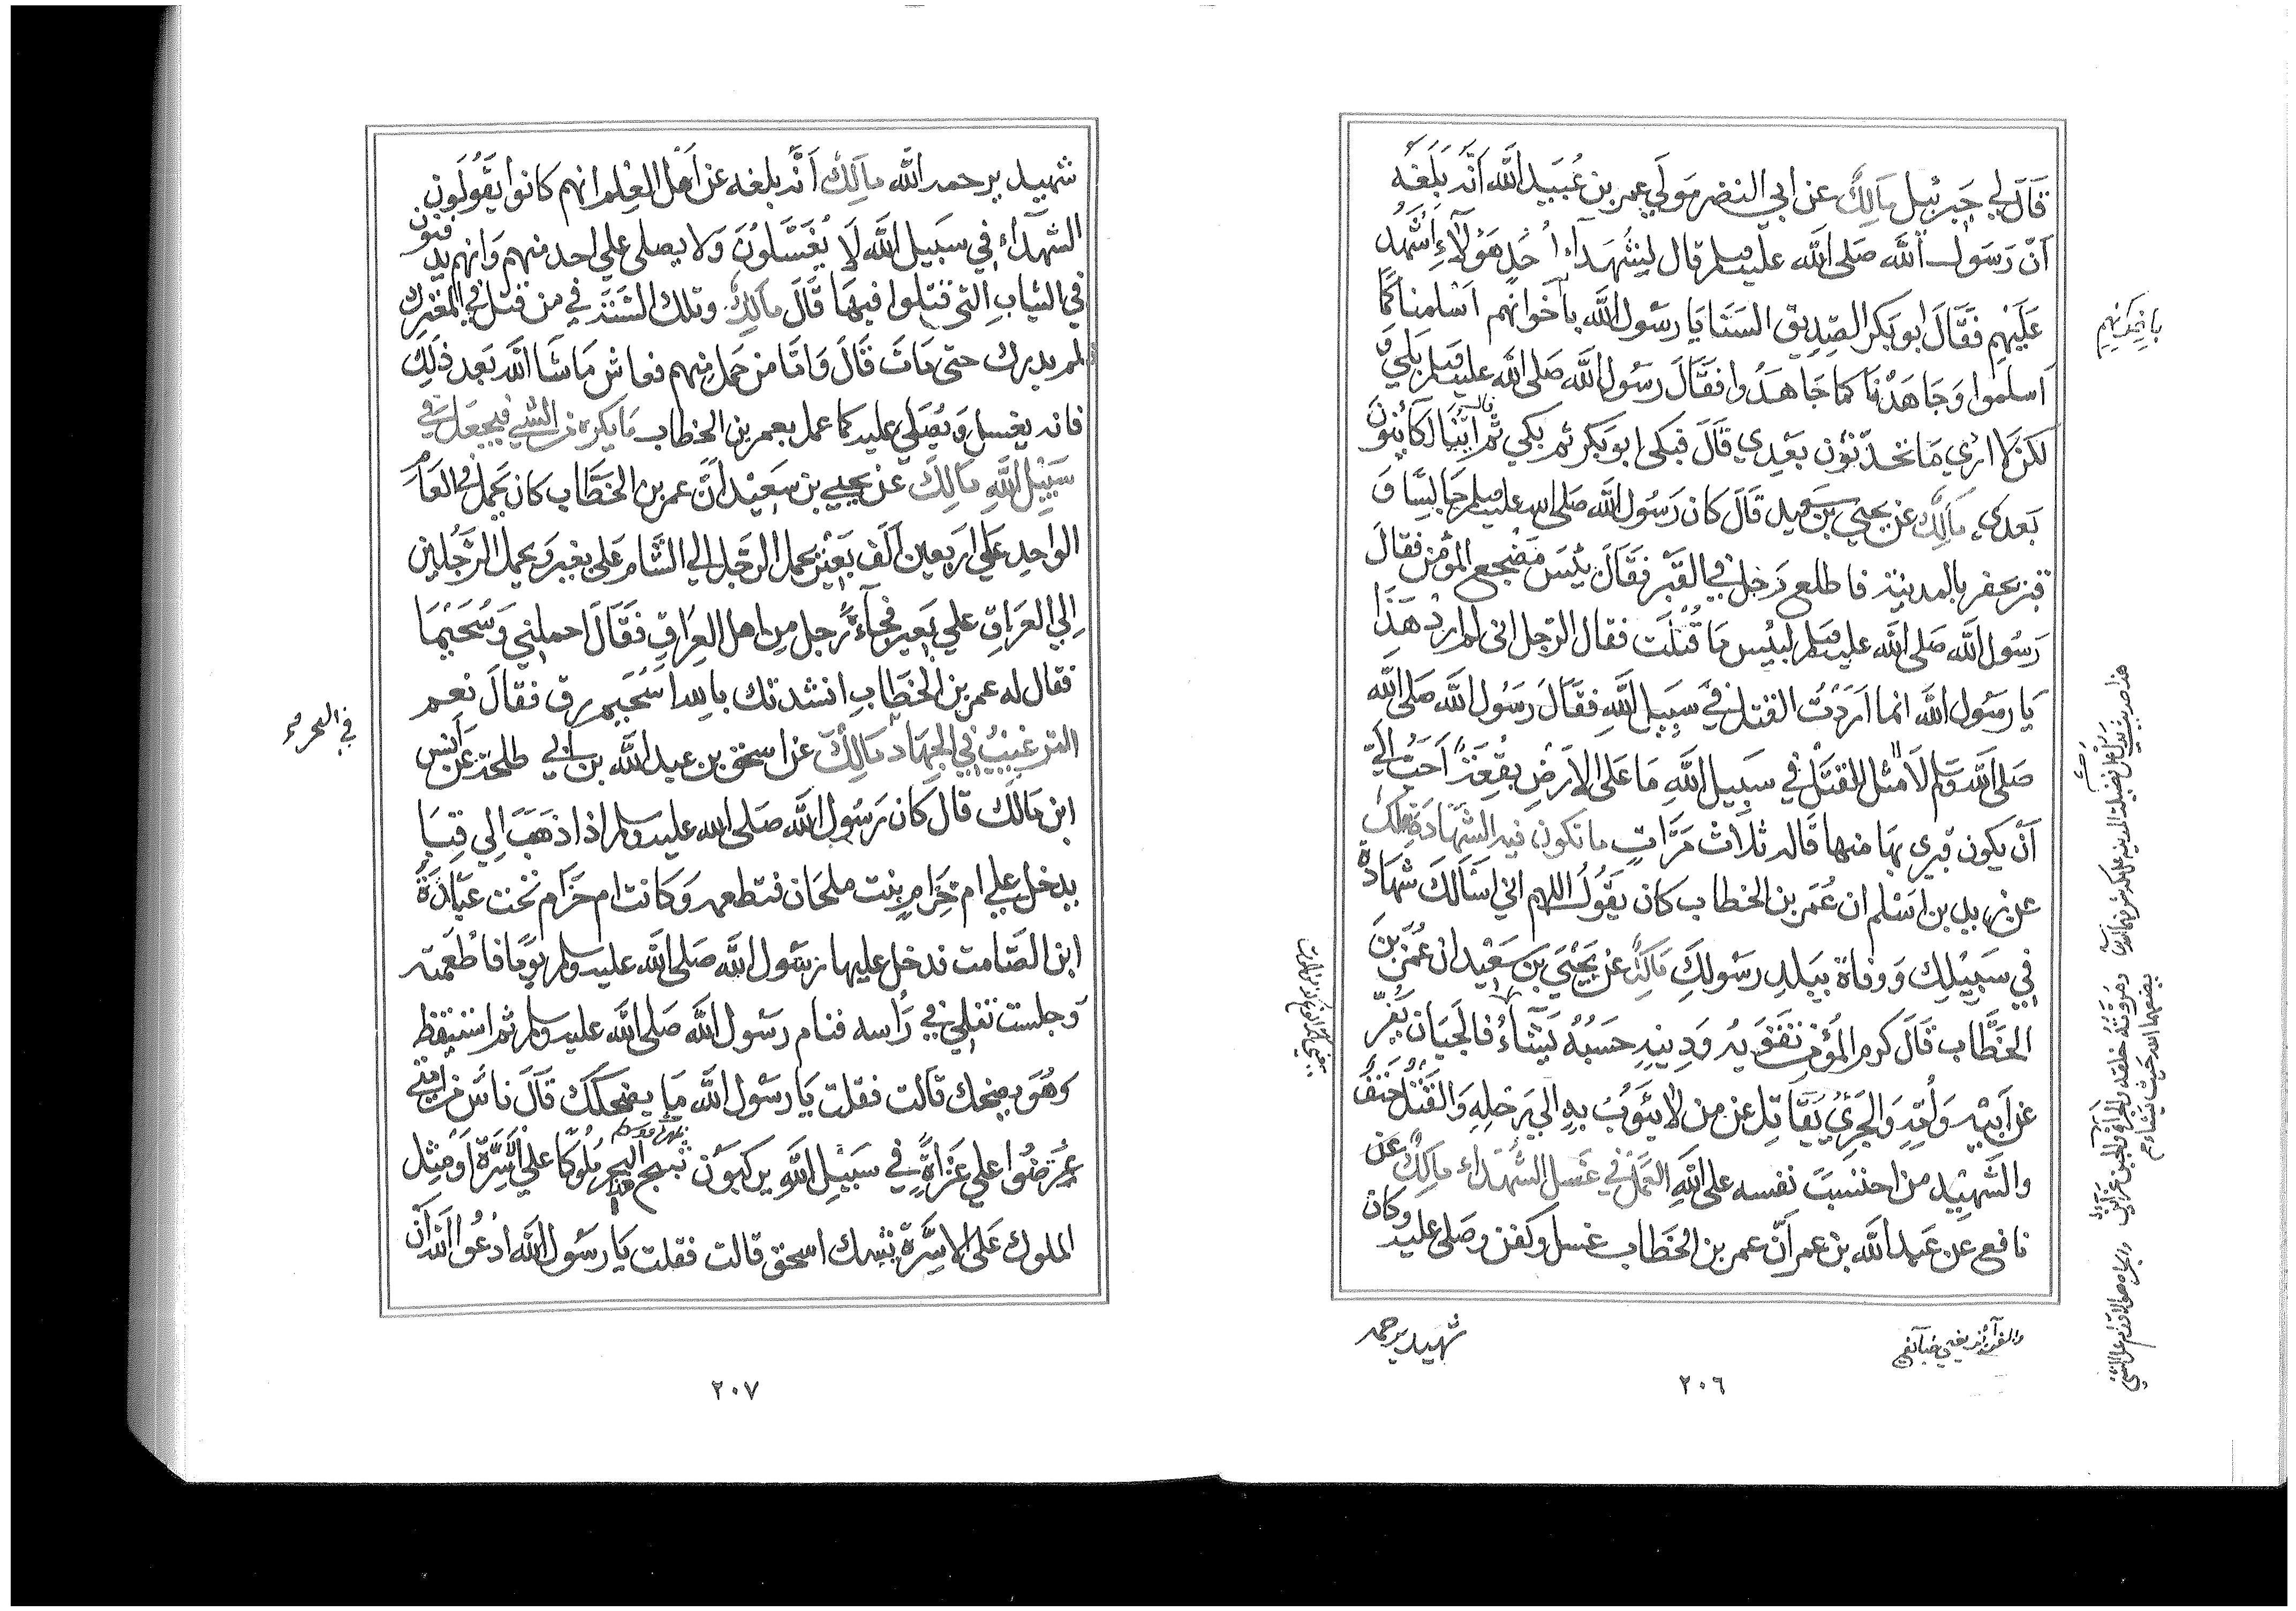 قَالَ لي جَبرئيل مَالِكٌ عن ابي النضر مَولَي عمر بن عُبَيد الله اَنَّه بَلَغَه
اَنّ رَسَول الله صَلى الله عليه وسلم قال لِشُهَدَآء اُحُدٍ هَؤلآءِ اَشْهَدُ
عَلَيْهِم فَقَالَ ابو بَكر الصِدِيق السَنَا يَا رسَول الله باَخوانهم اَسْلمنا كَمَا
اَسلموا وَجَاهَدْنَا كما جَاهَدُوا فقَالَ رَسَول الله صَلى الله عليه وسلم بَلي وَ
لكن لا ادري مَا تحدثون بَعْدي قَالَ فبكى ابو بَكر ثم بكي ثم قال اَئِنَّا لَكَائِنُونَ
بَعدك مَالِكٌ عن يحيَي بن سعيد قَالَ كان رَسُول الله صَلى الله عليه وسلم جَالِسًا وَ
قبر يحفر بالمدينة فاطلع رَجل في القَبْر فقَالَ بِئسَ مَضْجع المؤمن فقالَ
رَسُول الله صَلى الله عليه وسلم لبئس مَا قُلْت فقال الرّجل اني لم ارد هَذَا
يَا رسَول الله انما اَرَدْتُ القتل في سَبِيل الله فقَالَ رَسُول الله صَلى الله
صَلى الله وسلم لَا مثل للقَتْل في سَبِيل اللهِ مَا عَلى الارْضِ بقْعَةً اَحَبُّ اليّ
اَنْ يكون قبري بهَا منها قَاله ثلاث مَرَّاتٍ ما تكون فيه الشهَادَة مالك
عن زيد بن اسَلم ان عُمَر بن الخطاب كان يَقُولُ اللهم اني اَسَالكَ شَهادَة
في سَبِيْلِك وَوفاة بِبلدِ رسَولِكَ مَالِكٌ عَن يَحْيَي بن سَعْيد ان عُمَر بنَ
الخَطَّاب قَالَ كرم المؤمن تَقْوَيه وَدِينِهِ حَسَبُهُ فالجَبَان يَفِرّ
عن اَبيْه وَاُمّهِ وَالجَرَيُ يُقَاتِل عن من لا يَئوبُ بهِ الي رَحلِهِ وَالقَتْلُ حَتفٌ
والشَهِيْد من احتَسَبَ نفسه علَى اللهِ العَمَل في غَسل الشُهَدَاء مَالِكٌ عن
نافع عن عَبد الله بن عمر اَنّ عمر بن الخطاب غسل وكفن وصَلى عليه وكان
شهيد يرحمه
٢٠٦
شهيد يرحمه الله مَالِكٌ اَنّه بلغه عن اَهل العِلم انهم كانوا يَقُولون
الشهدَآء في سَبيل الله لَا يُغَسَّلُونَ وَلا يصلى علي احد منهم وَانهم يدفنون
في الثيابِ التي قتلوا فيهَا قَالَ مَالكٌ وتلك السُنَّة في من قتل في المعْتَرك
لم يدرك حتى مَاتَ قَالَ وَامّا من حمَل منهم فعاش مَا شَا الله بَعد ذلِك
فانه يغسل وَيُصَلي عليه كما عمل بعمر بن الخطاب مَا يكره من الشي يجعَل في
سَبِيْل الله مَالِكٌ عَن يحيي بن سَعِيْد اَنّ عمر بن الخَطَّاب كان يحمل في العَام
الواحِد عَلي اَربعين اَلف بَعِيْر يحمل الرّجل الي الشَّام عَلى بعير وَيحمل الرّجُلين
اِلي العَراق علي بَعير فجآءَ رَجل من اهل العِراق فقَالَ احملني وَسُحَيْمًا
فقال له عمر بن الخَطَّاب انشدتك بالله اسُحَيم زق فقالَ نعم
الترغيبُ في الجهَاد مَالِكٌ عن اسحق بن عبد الله بن ابي طلحة عن اَنس
ابن مَالك قال كان رَسُول الله صَلى الله عليه وسلم اذا ذهَبَ الي قبَا
يدخل علي ام حَرامٍ بنت ملحَان فتطعمه وَكانت ام حَرَام تحت عبَادَةَ
ابن الصَّامت فدخل عليها رسَول الله صَلى الله عليه وسلم يَومًا فاطْعَمته
وَجلست تفلي في رَاسه فنام رسَول الله صَلى الله عليه وسلم ثم استيقظ
وَهُوَ يضحك قالت فقلت يَا رسَول الله مَا يضحكك قَالَ ناسٌ من امتي
عُرِضُوا علي غزاةً في سَبيْلِ الله يركبون ثبج هذا البحر مُلوكًا علي الاَسِرَّة اَو مِثِل
الملوك عَلَى الاسِرَّة يشك اسحق قالت فقلت يَا رسَول الله ادْعُوا الله اَن
٢٠٧